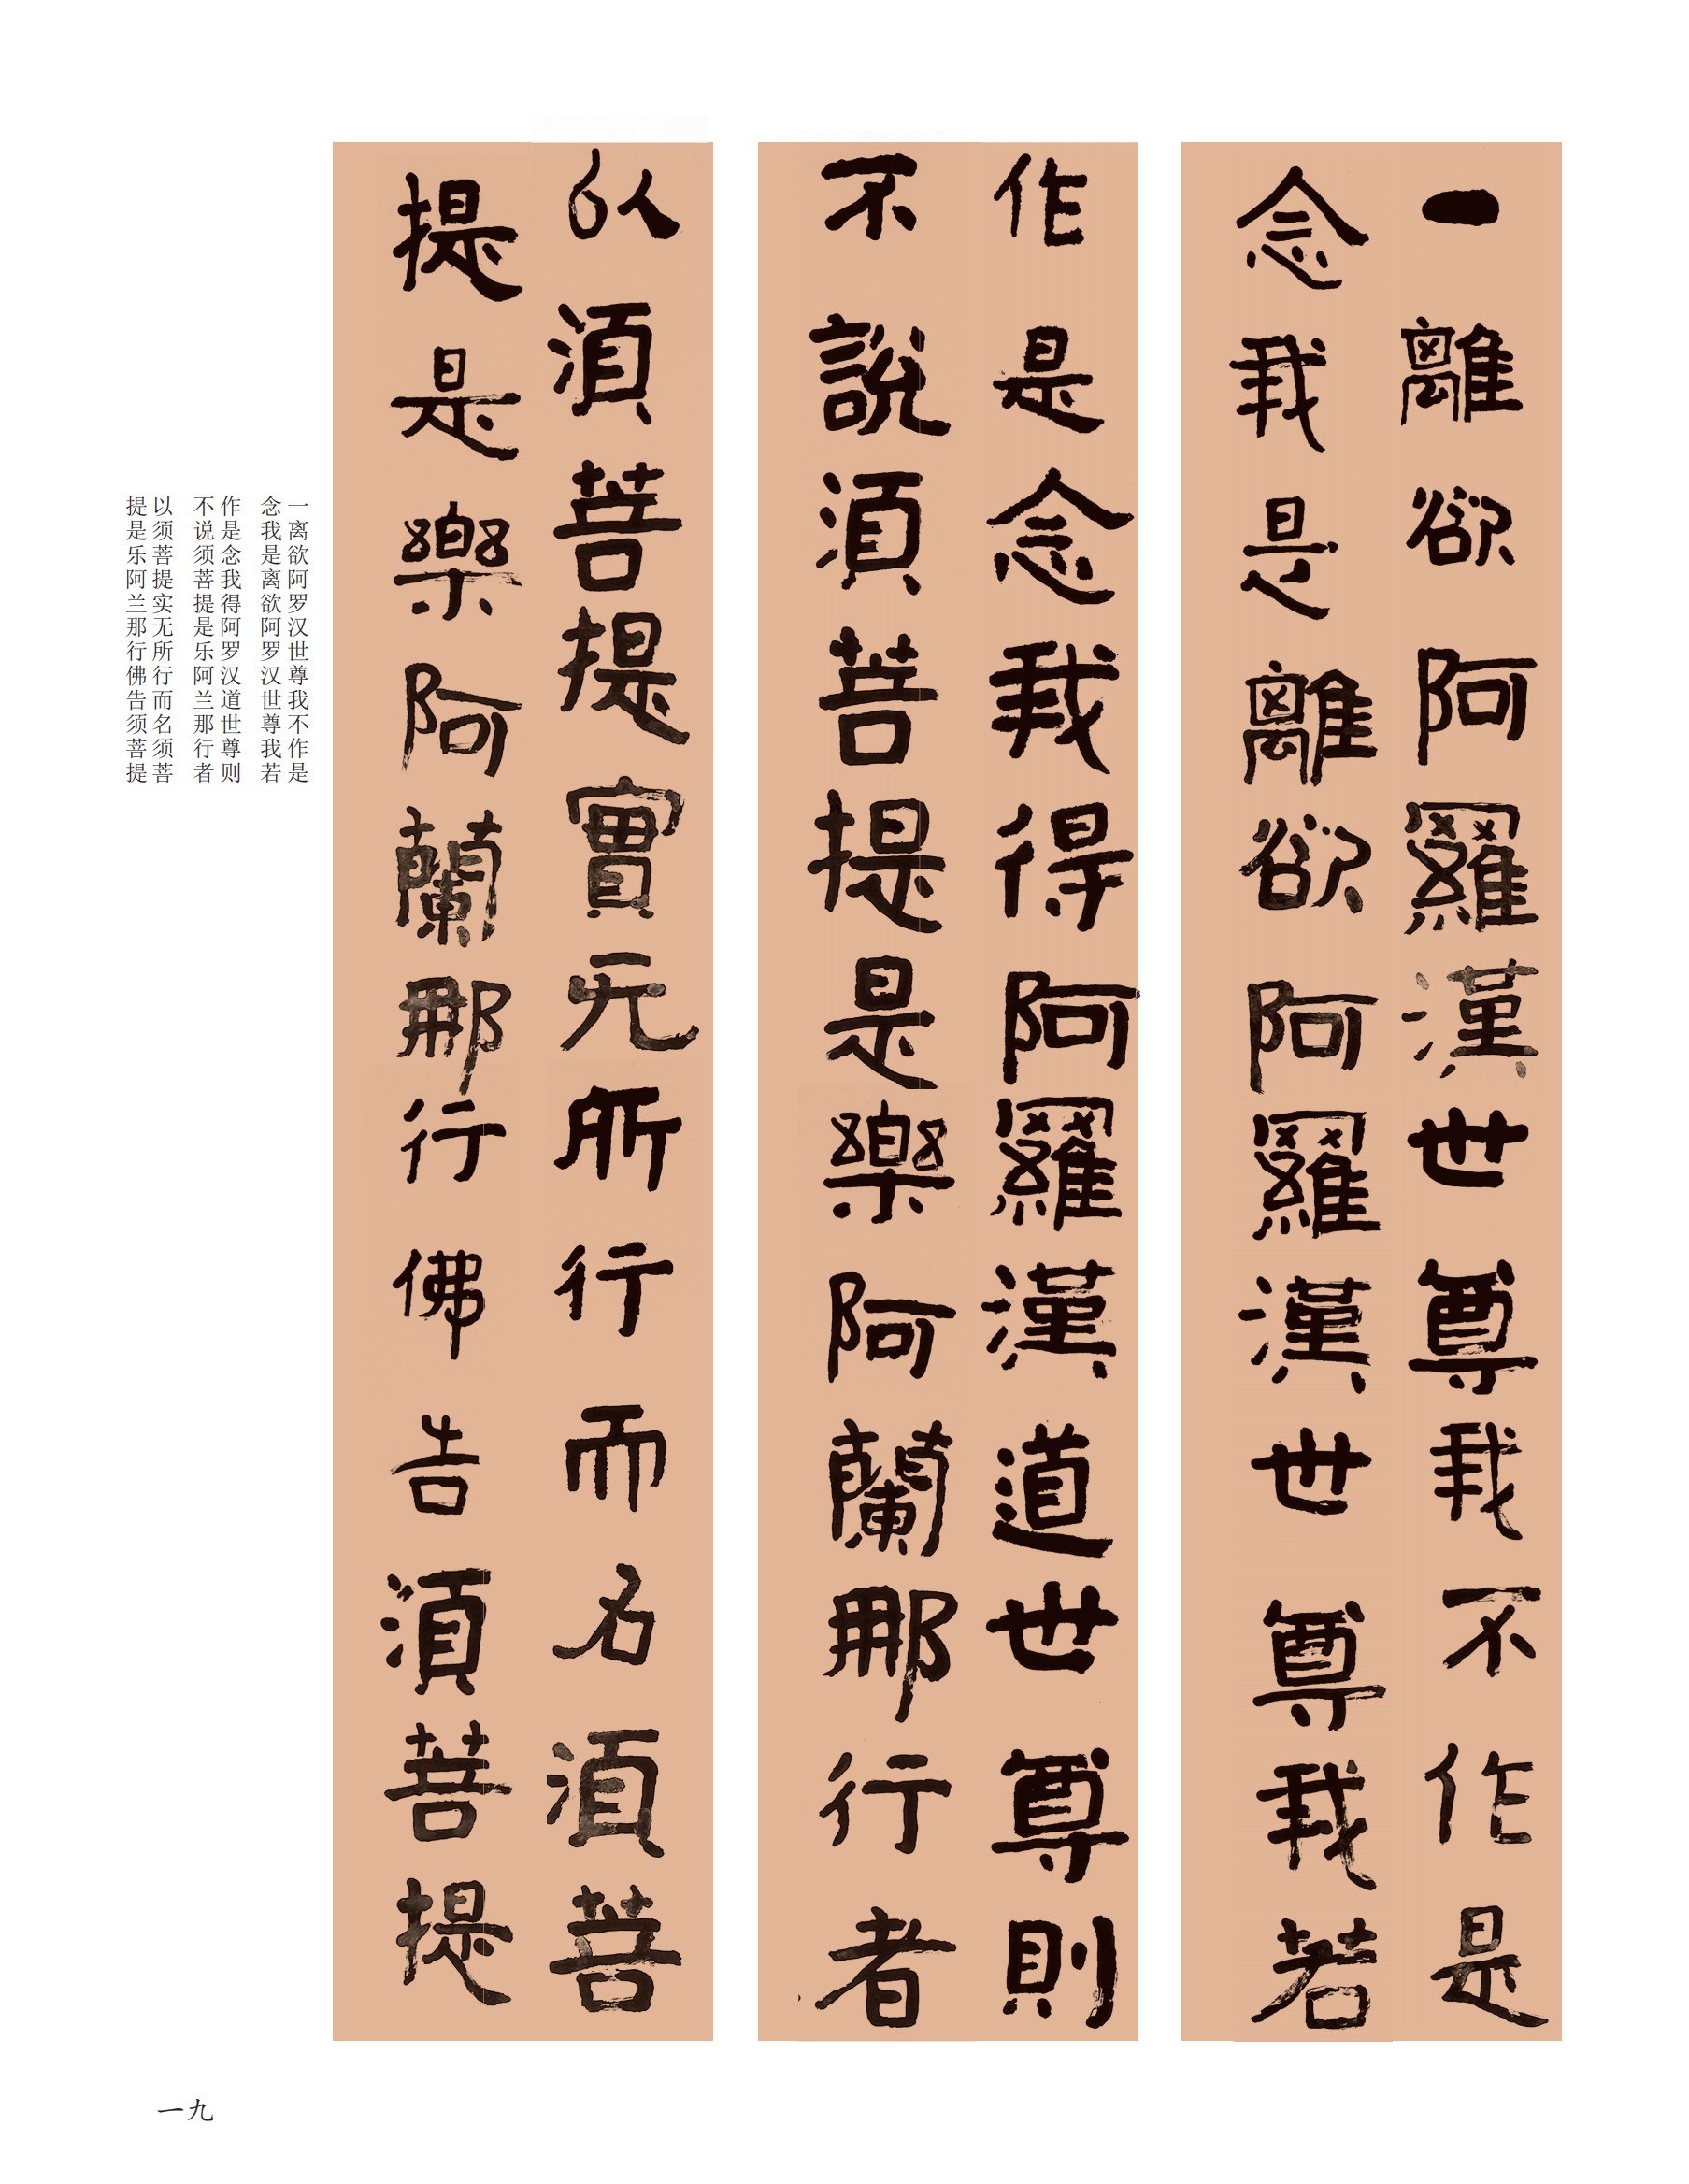 一離欲阿羅漢世尊我不作是
念我是離欲阿羅漢世尊我若
作是念我得阿羅漢道世尊則
不說須菩提是樂阿蘭那行者
以須菩提實无所行而名須菩
提是樂阿蘭那行佛告須菩提
一离欲阿罗汉世尊我不作是
念我是离欲阿罗汉世尊我若
作是念我得阿罗汉道世尊则
不说须菩提是乐阿兰那行者
以须菩提实无所行而名须菩
提是乐阿兰那行佛告须菩提
一九